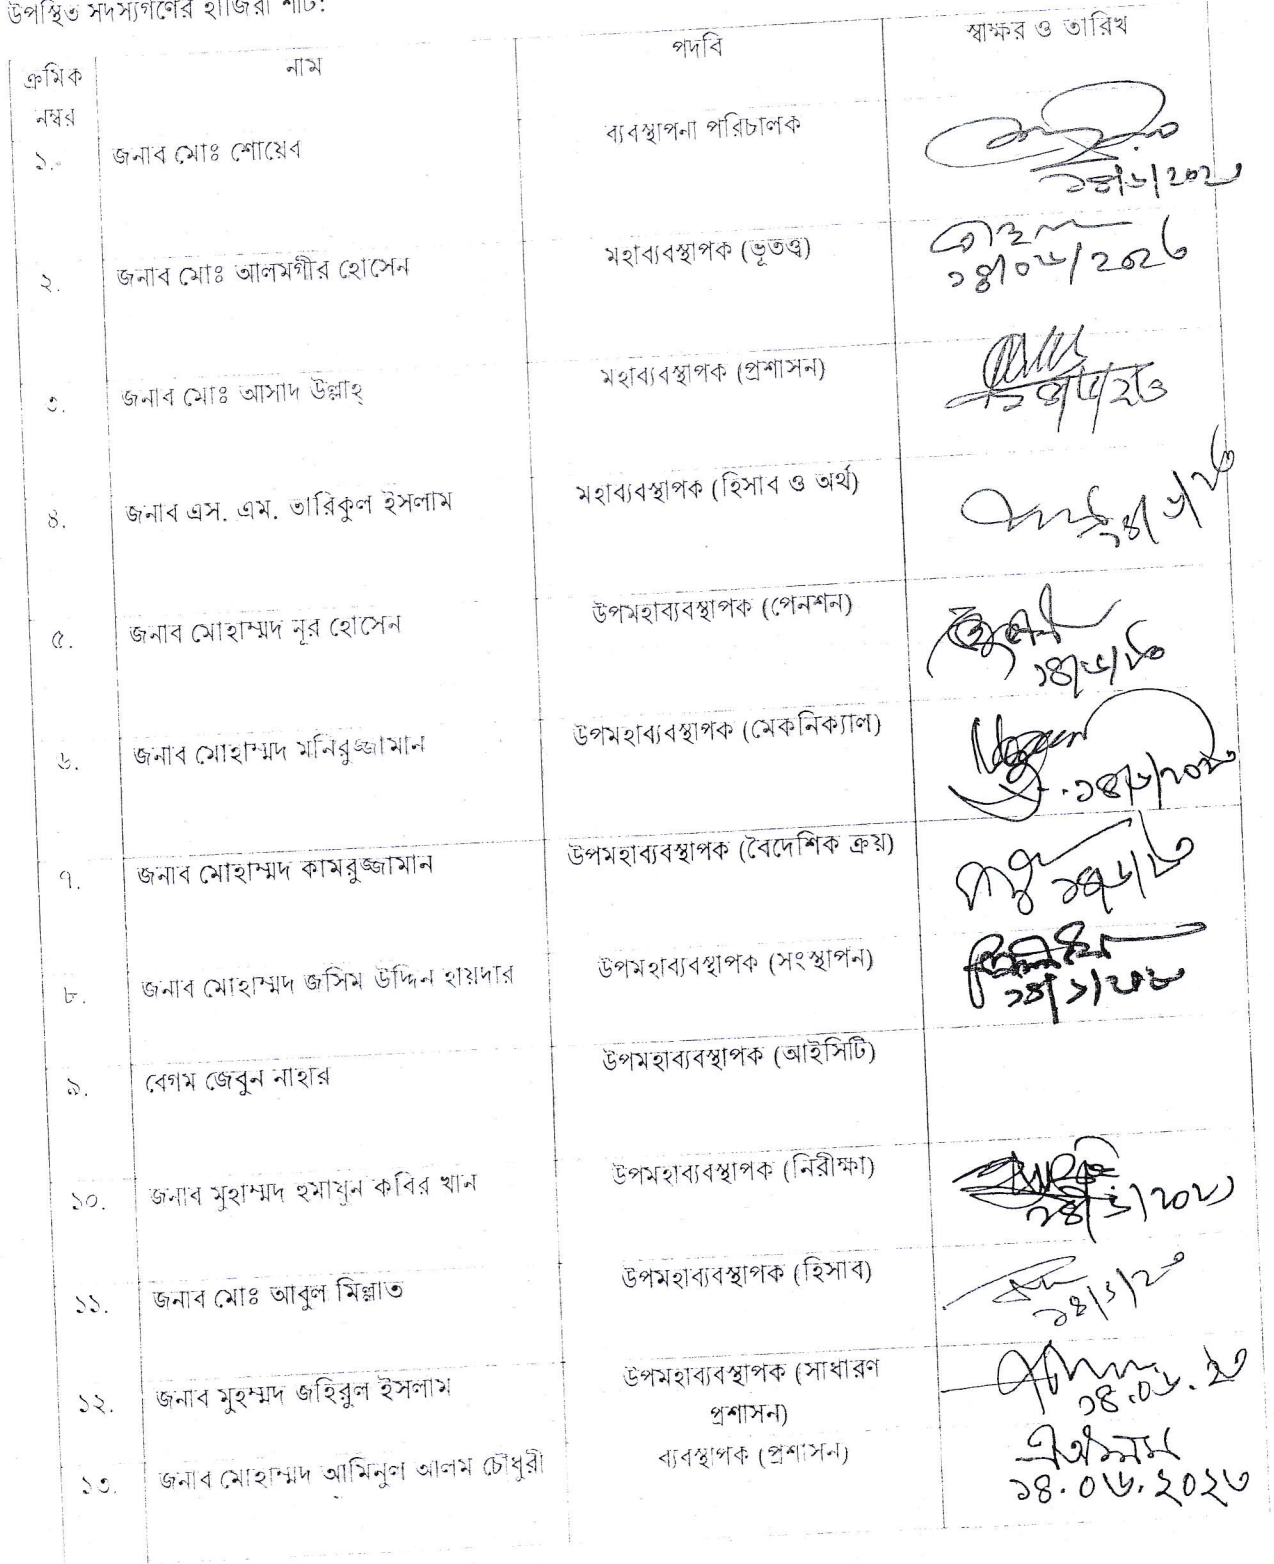 উপস্থিত সদস্যগণের হাজিরা শীট:
ক্রমিক নম্বর নাম পদবি স্বাক্ষর ও তারিখ
১. জনাব মোঃ শোয়েব ব্যবস্থাপনা পরিচালক
২. জনাব মোঃ আলমগীর হোসেন মহাব্যবস্থাপক (ভূতত্ত্ব)
১৪/০৬/২০২৩
৩. জনাব মোঃ আসাদ উল্লাহ্ মহাব্যবস্থাপক (প্রশাসন)
৪. জনাব এস. এম. তারিকুল ইসলাম মহাব্যবস্থাপক (হিসাব ও অর্থ)
১৪/৬/২৩
৫. জনাব মোহাম্মদ নূর হোসেন উপমহাব্যবস্থাপক (পেনশন)
১৪/৬/২৩
৬. জনাব মোহাম্মদ মনিরুজ্জামান উপমহাব্যবস্থাপক (মেকনিক্যাল)
১৪/৬/২০২৩
৭. জনাব মোহাম্মদ কামরুজ্জামান উপমহাব্যবস্থাপক (বৈদেশিক ক্রয়)
১৪/৬/২৩
৮. জনাব মোহাম্মদ জসিম উদ্দিন হায়দার উপমহাব্যবস্থাপক (সংস্থাপন)
৯. বেগম জেবুন নাহার উপমহাব্যবস্থাপক (আইসিটি)
১০. জনাব মুহাম্মদ হুমায়ুন কবির খান উপমহাব্যবস্থাপক (নিরীক্ষা)
১১. জনাব মোঃ আবুল মিল্লাত উপমহাব্যবস্থাপক (হিসাব)
১২. জনাব মুহম্মদ জহিরুল ইসলাম উপমহাব্যবস্থাপক (সাধারণ
প্রশাসন)
১৪.০৬.২৩
১৩. জনাব মোহাম্মদ আমিনুল আলম চৌধুরী ব্যবস্থাপক (প্রশাসন)
১৪.০৬.২০২৩